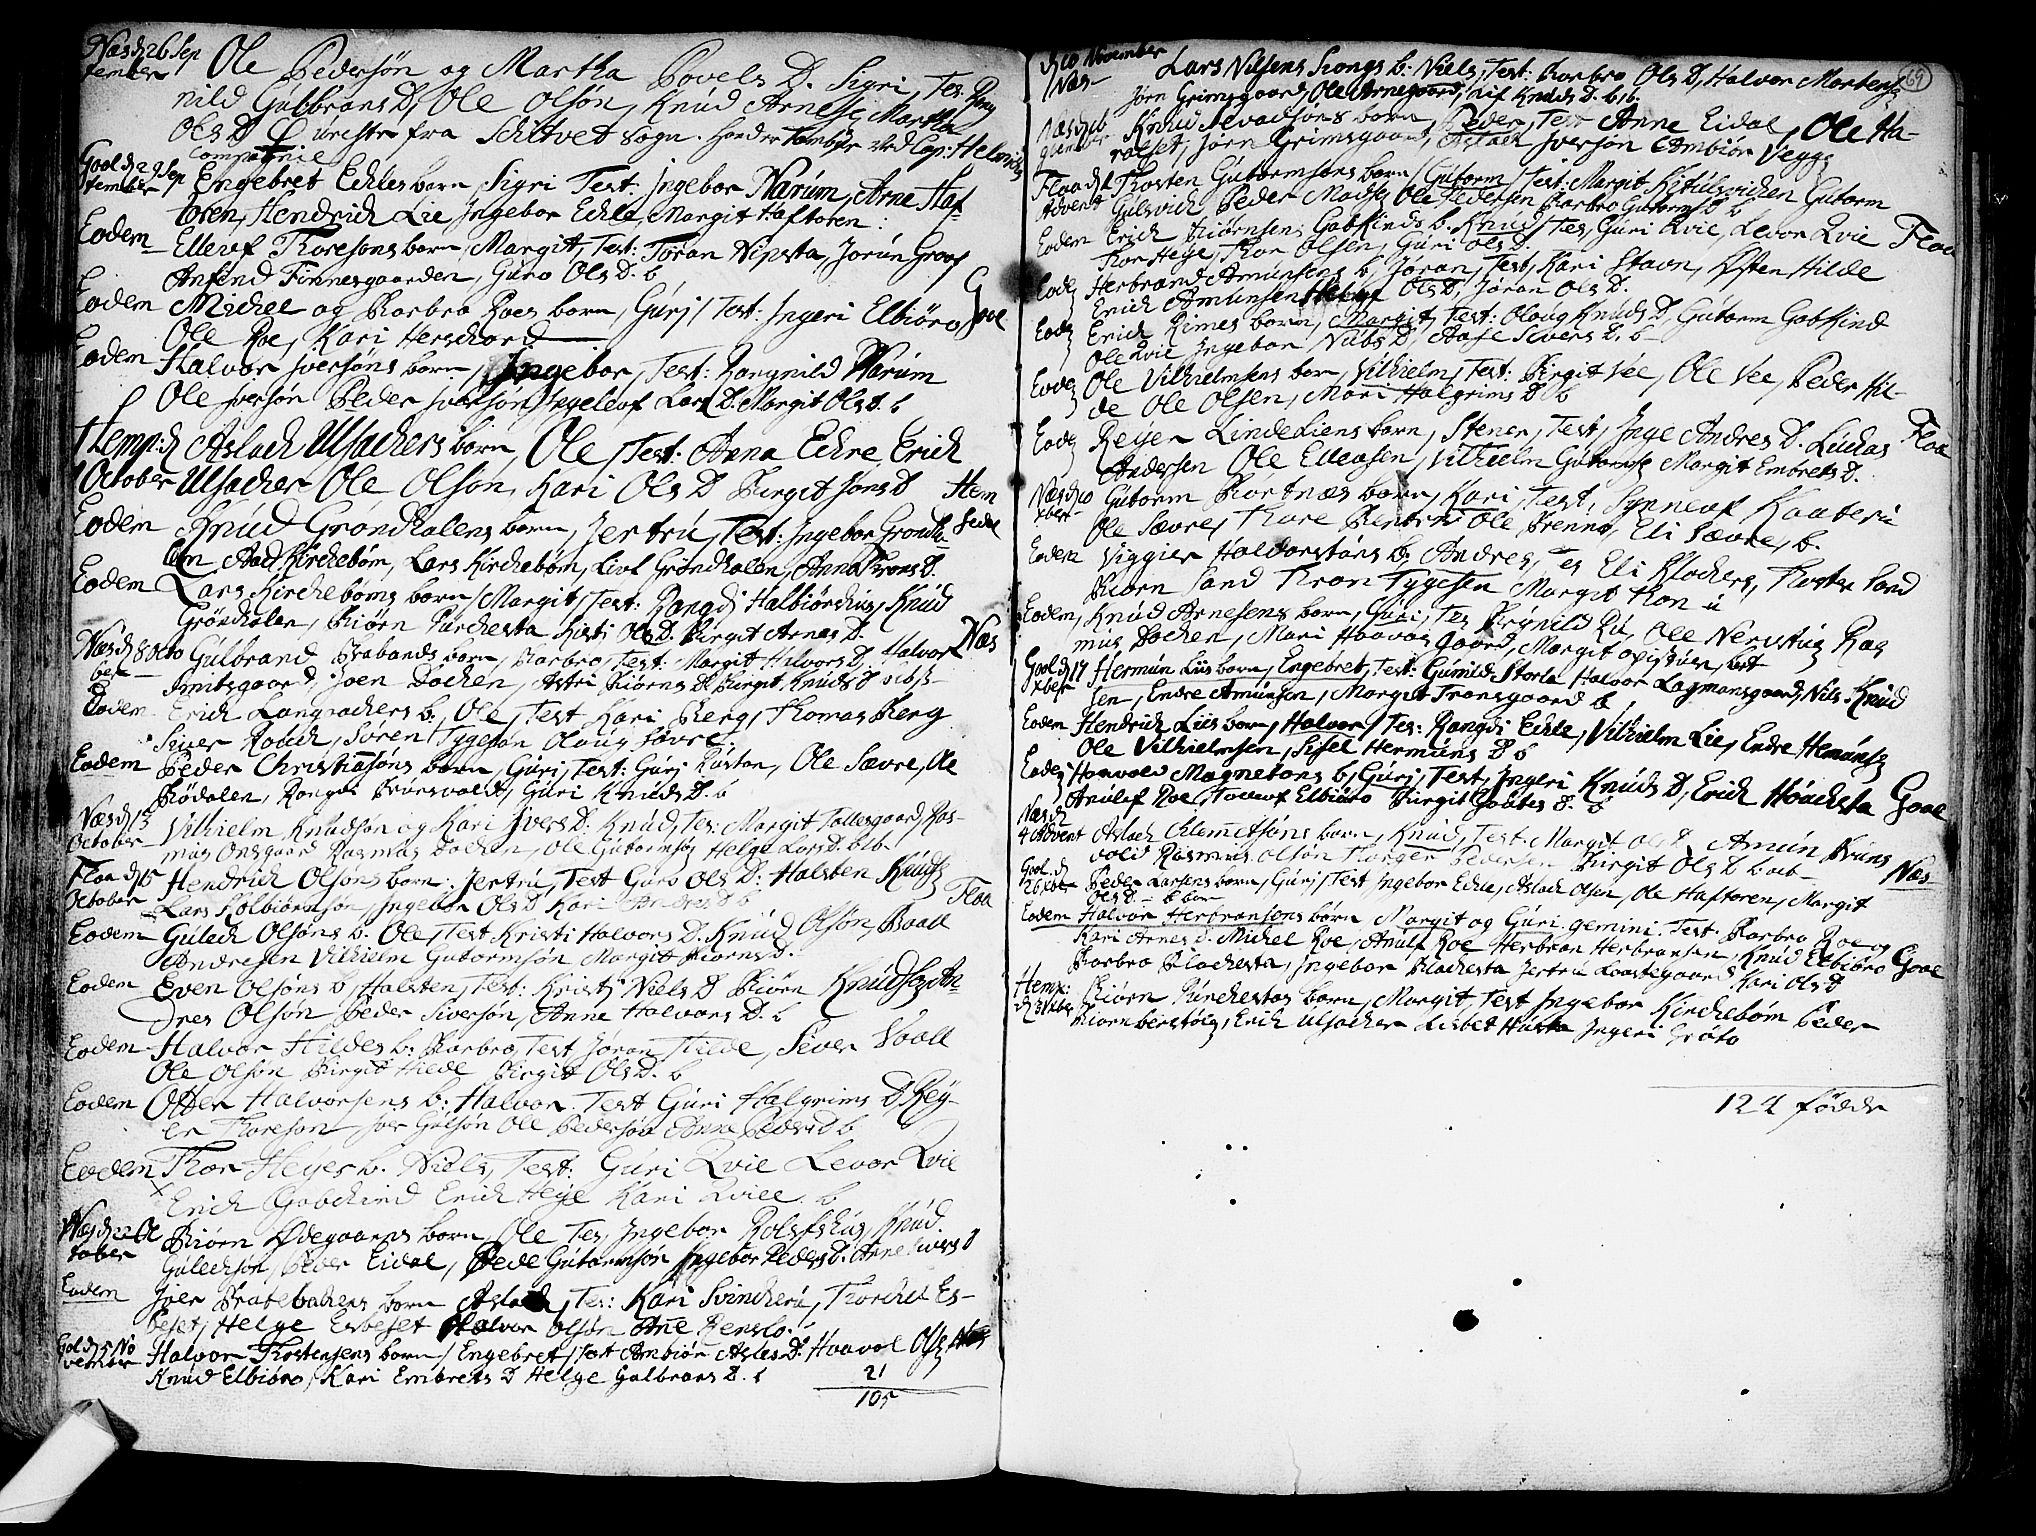 Næs d 26 Sep Ole Pedersøn og Martha Povels D. Sigri, Tes: Rang
tember nild Gulbrans D, Ole Olsøn, Knud Arnesz Martha
Ols D
fra Schitvet sogn
Compagnie
Gool d 29 Sep Engebret Echles barn, Sigri Test: Ingebor Narum, Arne Haf
tember toren, Hendrich Lie, Ingebor Echle, Margit Haftoren
Eodem Ellef Thoresøns barn, Margit, Test: Joran Nipsta, Jorun Groof
Amund Finnesgaarden, Guro Ols D. b
Eodem Michel og Barbro Roes barn, Guri, Test: Ingeri Elbiøro Goel
Ole Roe, Kari Herschord
Eodem Halvor Iversøns barn, Ingebor, Test: Rangnild Narum
Ole Iversøn Peder Iversøn Ingeleof Lars D. Margit Ols D. b
Hemp: d Aslach Ulsachers barn, Ole, Test. Anna Echre, Erich
1 October Ulsacher Ole Olsøn, Kari Ols D Birgit Jons D Hem
Eodem Knud Grøndhalens barn, Jertru, Test: Ingebor Grøndha- sedal
len, Aad Kirchebøn, Lars Kirchebøn, Livl Grøndhalen, Anna Trons D.
Eodem Lars Kirchebøns barn, Margit, Test: Rangdi Halbiørhus, Knud
Grøndhalen, Biørn Purchesta Kisti Ols D. Birgit Arnes D.
Næs d 8 Octo Gulbrand Brabands barn, Barbro, Test: Margit Halvors D, Halvor Næs
ber Smitsgaard, Joen Dochen, Astri Biørns D Birgit Knuds D
Eodem Erich Langachers b: Ole, Test Kari Berg, Thomas Berg
Siver Rouch, Søren Tygesøn Oloug Søvre
Eodem Peder Christiansøns barn, Guri, Test: Guri Rustan, Ole Sævre, Ole
Bødalen, Rangdi Brunsvold, Guri Knuds D. b
Næs d 13 Vilhielm Knudsøn og Kari Ivers D. Knud, Tes: Margit Tollesgaard, Ras-
October mus Onsgaard Rasmus Dochen, Ole Gutormsøn Helge Lars D. b
Floa d 15 Hendrich Olsøns barn: Jertru, Test Guro Ols D: Halsten Knudsz Floa
October Lars Kolbiørnsøn, Ingebor Ols D Kari Andres D b
Eodem Gulach Olsøns b. Ole, Test Kristi Halvors D. Knud Olsøn, Paall
Andresen Vilhielm Gutormsøn Margit Biørns D.
Eodem Even Olsøns b, Halsten, Test: Kristi Niels D Biørn Knudsz An-
dres Olsøn Peder Siversøn, Anne Halvors D. b
Eodem Halvor Hildes b: Barbro, Test Joran Hilde, Siver Vaall
Ole Olsøn Birgit Hilde Birgit Ols D. b
Eodem Otter Halvorsens b: Halvor. Test Guri Halgrims D, Rey-
er Thoresøn Iver Gulsøn Ole Pedersøn Anne Peders D b
Eodem Thor Heyes b. Niels, Test: Guri Qvie Levor Qvie
Erich Gobchind Erich Heye Kari Qvie. b
Næs d 22 Oc Biørn Ødegaarns barn, Ole Tes, Ingebor Rolfshus, Knud
tober Gulechsøn, Peder Eidal, Pede Gutormsøn Ingebor Peders D. Anne Sivers D
Eodem Joen Bratebachens barn Aslach, Tes: Kari Svincheru, Thorchil Es-
beset, Helge Esbeset Halvor Olsøn Ane Renslo.
Gol d 5 No Halvor Thostensens barn, Engebret, Test Ambiør Asles D: Haavol Olsz
vember Knud Elbiøro, Kari Embrets D Helge Gulbrans D. b
21
105
69
d 10 November Lars Nilsens Kongs b: Niels, Test: Barbro Ols D, Halvor Mortensz
Næs Jørn Grimsgaard, Ole Arnegaard, Lif Knuds D. b
Knud Sevadsøns barn, Peder, Test Anne Eidal, Ole Ha-
ralset, Jørn Grimsgaard, Aslach Iversøn Ambiør Veggz
Floa d 1 Thosten Gutormsøns barn, Gutorm, Test: Margit Kitilsvichen Gutorm
Advent Gulsvich Peder Madsz Ole Pedersen Barbro Gutorms D b
Eodem Erich Biørnsens Gobkinds b. Knud, Tes, Guri Qvie, Levor Qvie Floa
Thor Heye, Thor Olsen, Guri Ols D.
Eodez Herbrand Amunsens b, Joran, Test, Kari Stavn, Østen Hilde
Erich Amunsen Ols D, Joran Ols D.
Eodz Erich Rimes barn, Margit, Test: Oloug Knuds D, Gutorm Gobkind
Ole Qvie Ingebor Nubs D, Aase Severs D. b
Eodez Ole Vilhielmsens barn, Vilhielm, Test: Birgit Vee, Ole Vee, Peder Hil-
de Ole Olsen, Mari Halgrims D b
Eodz Reyer Lindeliens barn, Stener, Test, Inge Andres D. Luchas Floa
Andersen Ole Ellensen, Vilhielm Gutormsz Margit Embrets D.
Næs d 10 Gutorm Biortnæs barn, Kari, Test, Synneof Kaaberu
xber Ole Sævre, Thore Ole Brenno, Eli Sævre, b.
Eodem Viggier Halvorsøns b, Andres, Tes Eli Klochers, Thosten Sand
Biørn Sand Thron Tygesen Margit
Eodem, Knud Arnesens barn, Guri, Tes Brynild Ru, Ole Nerustug Ras
mus Dochen, Mari Haavarsgaard, Margit opistuen,
Gool d 17 Hermun Liis barn, Engebret, Test: Gunild Storla Halvor Lagmansgaard, Nils Knud
xber sen, Endre Amunsen, Margit Transgaard b
Eodem Hendrich Liis barn, Halvor, Tes: Rangdi Echle, Vilhielm Lie, Endre Hemunsz
Ole Vilhielmsen, Sisel Hermuns D b
Eodez Haavold Magnetons b, Guri, Test, Ingeri Knuds D, Erich Hoachsta Goel
Anulf Roe, Toleof Elbiøro Birgit Goutes D. b
Næs d
4 Advent Aslach Clemetsøns barn, Knud, Test. Margit Ols D Amun Bruns
vold Rasmus Olsøn Thorger Pedersen Birgit Ols D b Næs
Gool d Peder Larsens barn, Guri, Test Ingebor Echle, Aslach Olsen, Ole Haftoren, Margit
26 xber Ols D
Eodem Halvor Herbransens børn, Margit og Guri gemini. Test. Barbro Roe og
Kari Arnes D. Michel Roe, Anulf Roe Herbran Herbransen, Knud Elbiøro Goel
Barbro Blachesta, Ingebor Blachesta Jertru Loostegaard Kari Ols D
Hemp: Biørn Purchestas barn, Margit, Test Ingebor Kirchebøn Peder
d 31 xber Biørnberstølz, Erich Ulsacher Lisbet Husta Ingeri Grøto
124 fødde